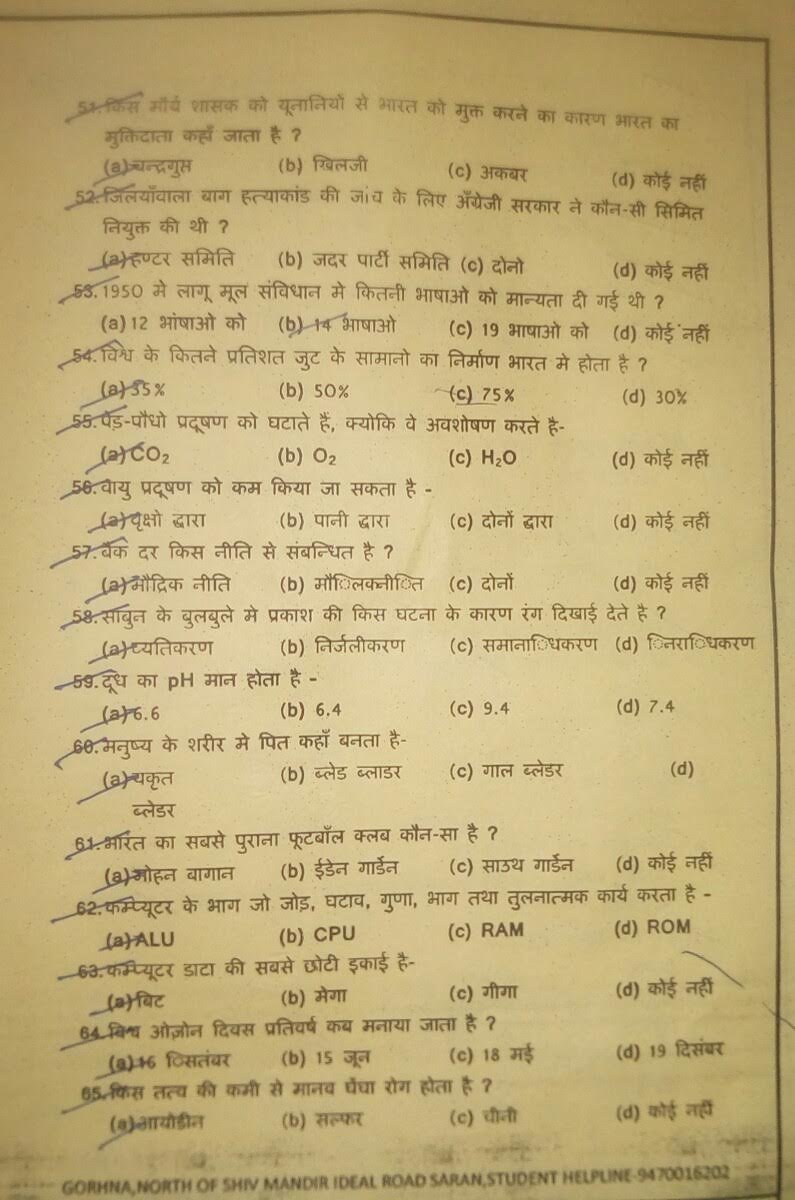 51. किस मौर्य शासक को यूनानियों से भारत को मुक्त करने का कारण भारत का
मुक्तिदाता कहाँ जाता है ?
(a) चन्द्रगुप्त (b) खिलजी (c) अकबर (d) कोई नहीं
52. जिलयाँवाला बाग हत्याकांड की जांच के लिए अँग्रेजी सरकार ने कौन-सी सिमित
नियुक्त की थी ?
(a) हण्टर समिति (b) जदर पार्टी समिति (c) दोनो (d) कोई नहीं
53. 1950 मे लागू मूल संविधान मे कितनी भाषाओ को मान्यता दी गई थी ?
(a) 12 भांषाओ को (b) 14 भाषाओ (c) 19 भाषाओ को (d) कोई नहीं
54. विश्व के कितने प्रतिशत जुट के सामानो का निर्माण भारत मे होता है ?
(a) 35% (b) 50% (c) 75% (d) 30%
55. पेड़-पौधो प्रदूषण को घटाते हैं, क्योकि वे अवशोषण करते है-
(a) CO₂ (b) O₂ (c) H₂O (d) कोई नहीं
56. वायु प्रदूषण को कम किया जा सकता है -
(a) वृक्षो द्वारा (b) पानी द्वारा (c) दोनों द्वारा (d) कोई नहीं
57. बैंक दर किस नीति से संबन्धित है ?
(a) मौद्रिक नीति (b) मौिलकनीित (c) दोनों (d) कोई नहीं
58. साबुन के बुलबुले मे प्रकाश की किस घटना के कारण रंग दिखाई देते है ?
(a) ध्यतिकरण (b) निर्जलीकरण (c) समानािधकरण (d) िनरािधकरण
59. दूध का pH मान होता है -
(a) 6.6 (b) 6.4 (c) 9.4 (d) 7.4
60. मनुष्य के शरीर मे पित कहाँ बनता है-
(a) यकृत (b) ब्लेड ब्लाडर (c) गाल ब्लेडर (d)
ब्लेडर
61. भारत का सबसे पुराना फूटबॉल क्लब कौन-सा है ?
(a) मोहन बागान (b) ईडेन गार्डेन (c) साउथ गार्डेन (d) कोई नहीं
62. कम्प्यूटर के भाग जो जोड़, घटाव, गुणा, भाग तथा तुलनात्मक कार्य करता है -
(a) ALU (b) CPU (c) RAM (d) ROM
63. कम्प्यूटर डाटा की सबसे छोटी इकाई है-
(a) बिट (b) मेगा (c) गीगा (d) कोई नहीं
64. विश्व ओज़ोन दिवस प्रतिवर्ष कब मनाया जाता है ?
(a) 16 िसतंबर (b) 15 जून (c) 18 मई (d) 19 दिसंबर
65. किस तत्व की कमी से मानव घेंघा रोग होता है ?
(a) आयोडीन (b) सल्फर (c) चीनी (d) कोई नहीं
GORHNA,NORTH OF SHIV MANDIR IDEAL ROAD SARAN,STUDENT HELPLINE-9470016202